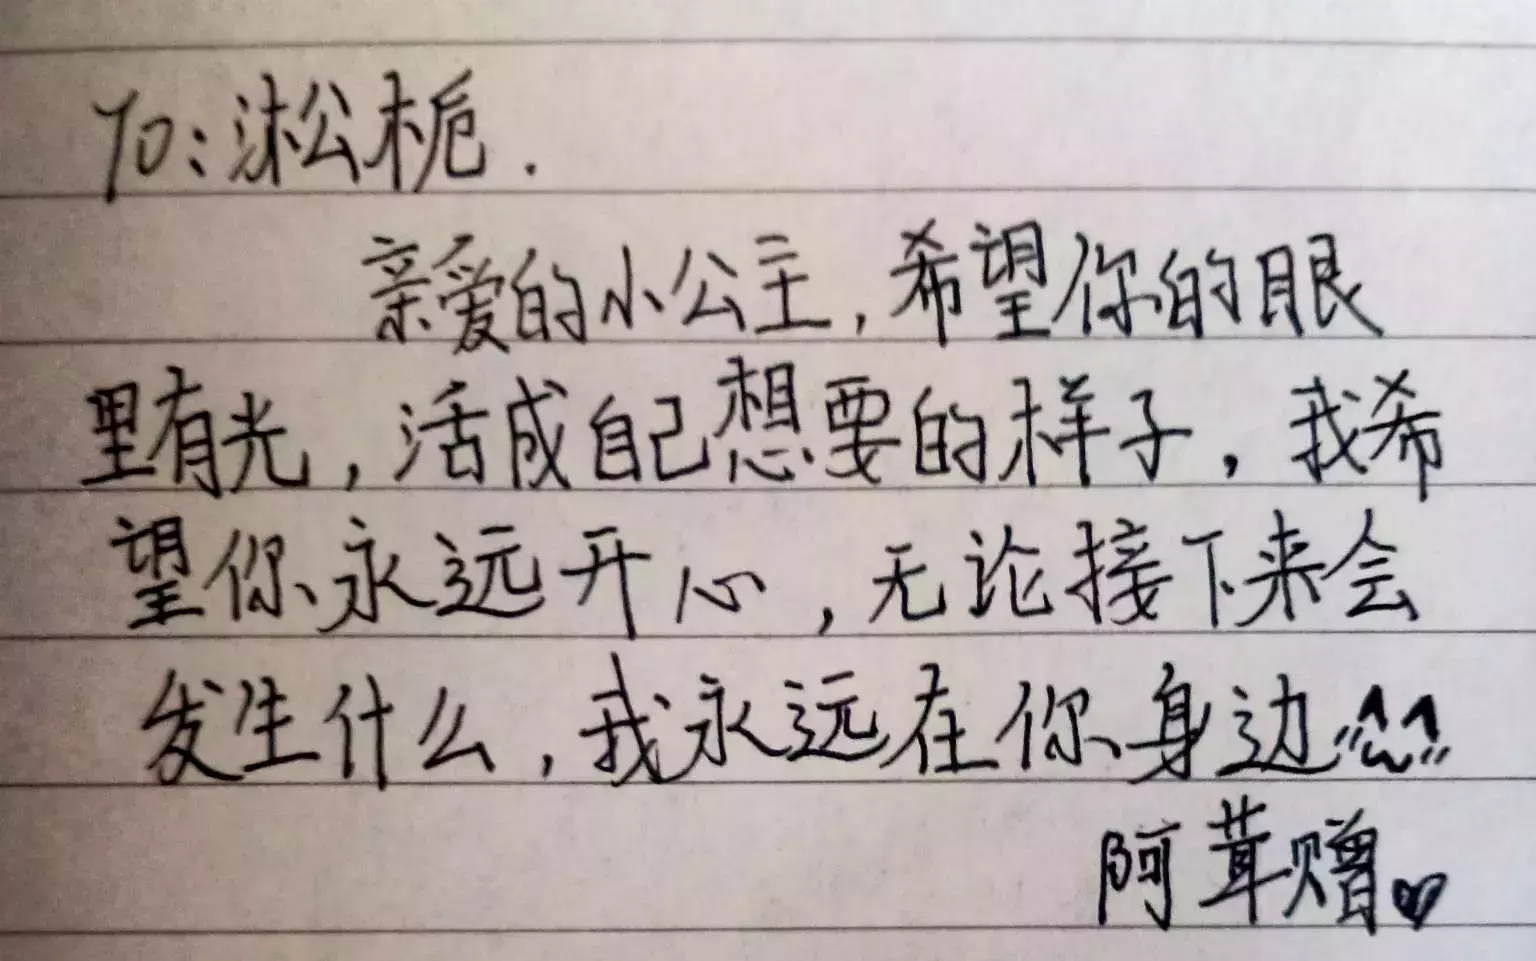 To:淞栀.
亲爱的小公主,希望你的眼
里有光,活成自己想要的样子,我希
望你永远开心,无论接下来会
发生什么,我永远在你身边
阿茸赠